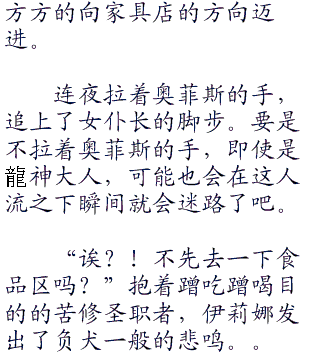 方方的向家具店的方向迈
进。
连夜拉着奥菲斯的手，
追上了女仆长的脚步。要是
不拉着奥菲斯的手，即使是
龍神大人，可能也会在这人
流之下瞬间就会迷路了吧。
“诶？！不先去一下食
品区吗？”抱着蹭吃蹭喝目
的的苦修圣职者，伊莉娜发
出了负犬一般的悲鸣。。